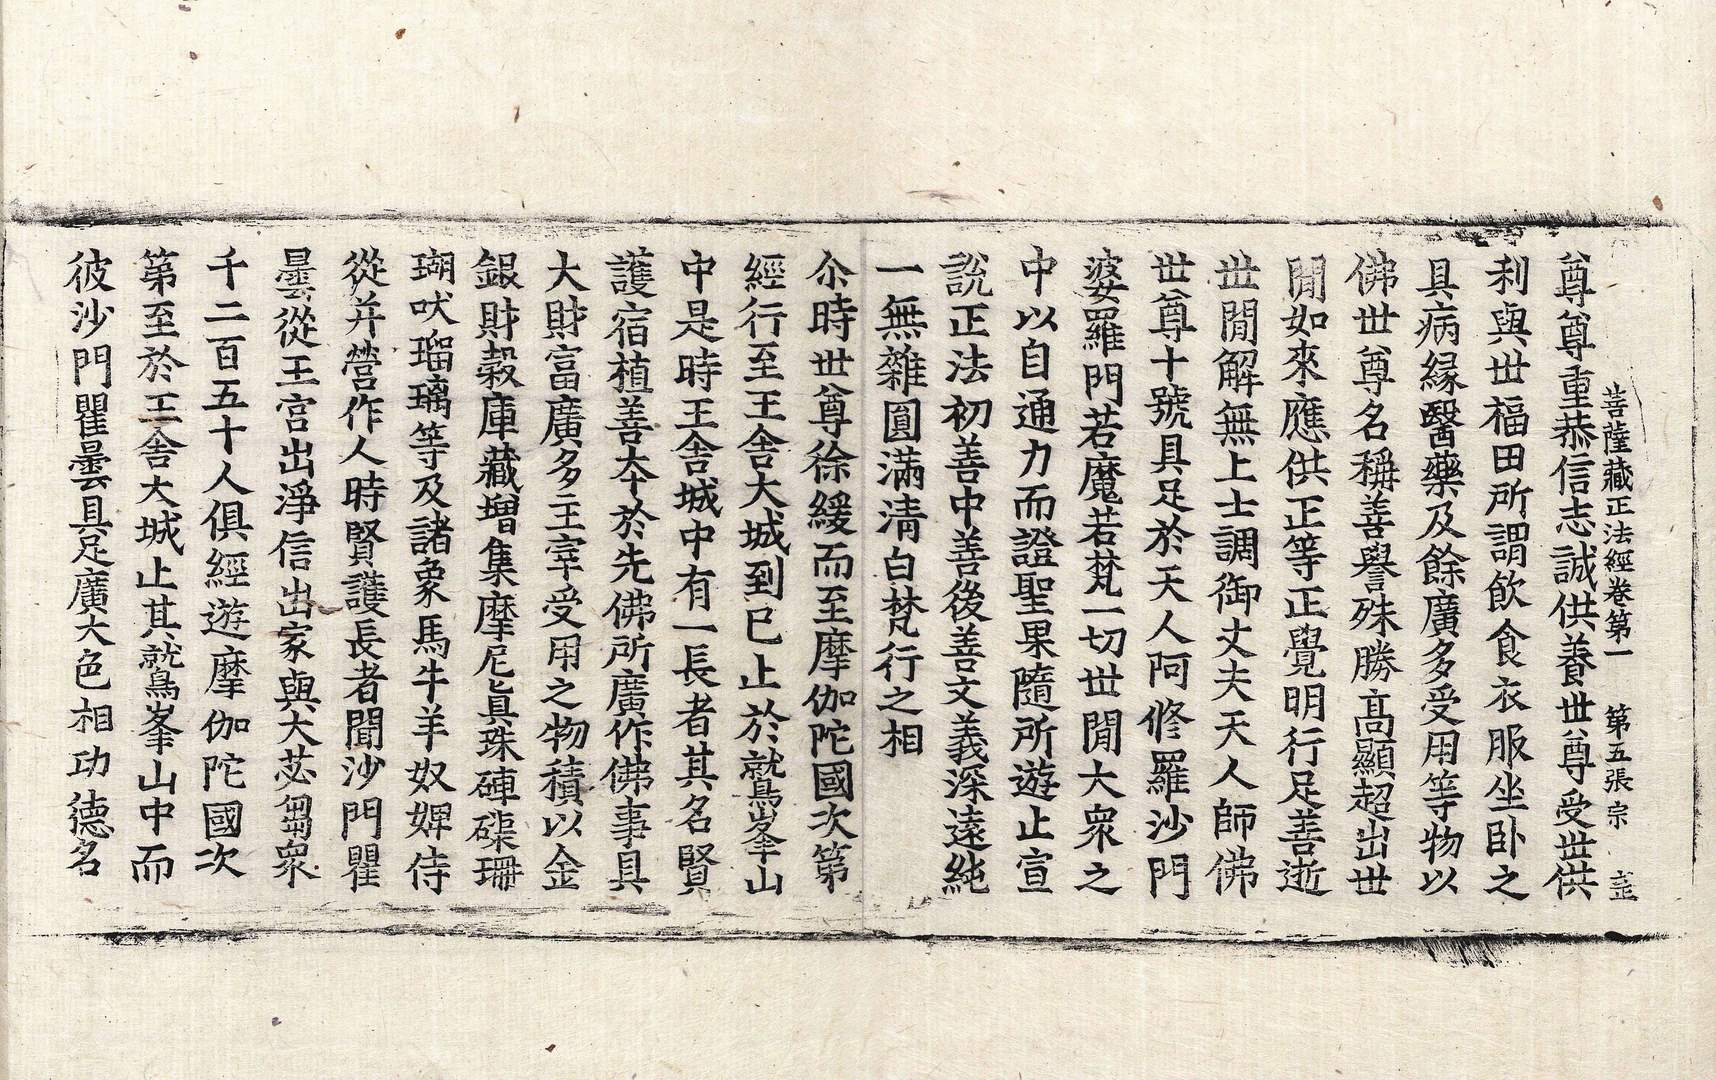 菩薩藏正法經卷第一　第五張　宗
尊尊重恭信志誠供養世尊受世供
利與世福田所謂飲食衣服坐卧之
具病緣醫藥及餘廣多受用等物以
佛世尊名稱善譽殊勝高顯超出世
閒如來應供正等正覺明行足善逝
世閒解無上士調御丈夫天人師佛
世尊十號具足於天人阿修羅沙門
婆羅門若魔若梵一切世閒大衆之
中以自通力而證聖果隨所遊止宣
說正法初善中善後善文義深遠純
一無雜圓滿清白梵行之相
尒時世尊徐緩而至摩伽陀國次第
經行至王舍大城到已止於鷲峯山
中是時王舍城中有一長者其名賢
護宿植善夲於先佛所廣作佛事具
大財富廣多主宰受用之物積以金
銀財穀庫藏增集摩尼真珠硨磲珊
瑚吠瑠璃等及諸象馬牛羊奴婢侍
從并營作人時賢護長者聞沙門瞿
曇從王宮出淨信出家與大苾芻衆
千二百五十人俱經遊摩伽陀國次
第至於王舍大城止其鷲峯山中而
彼沙門瞿曇具足廣大色相功德名